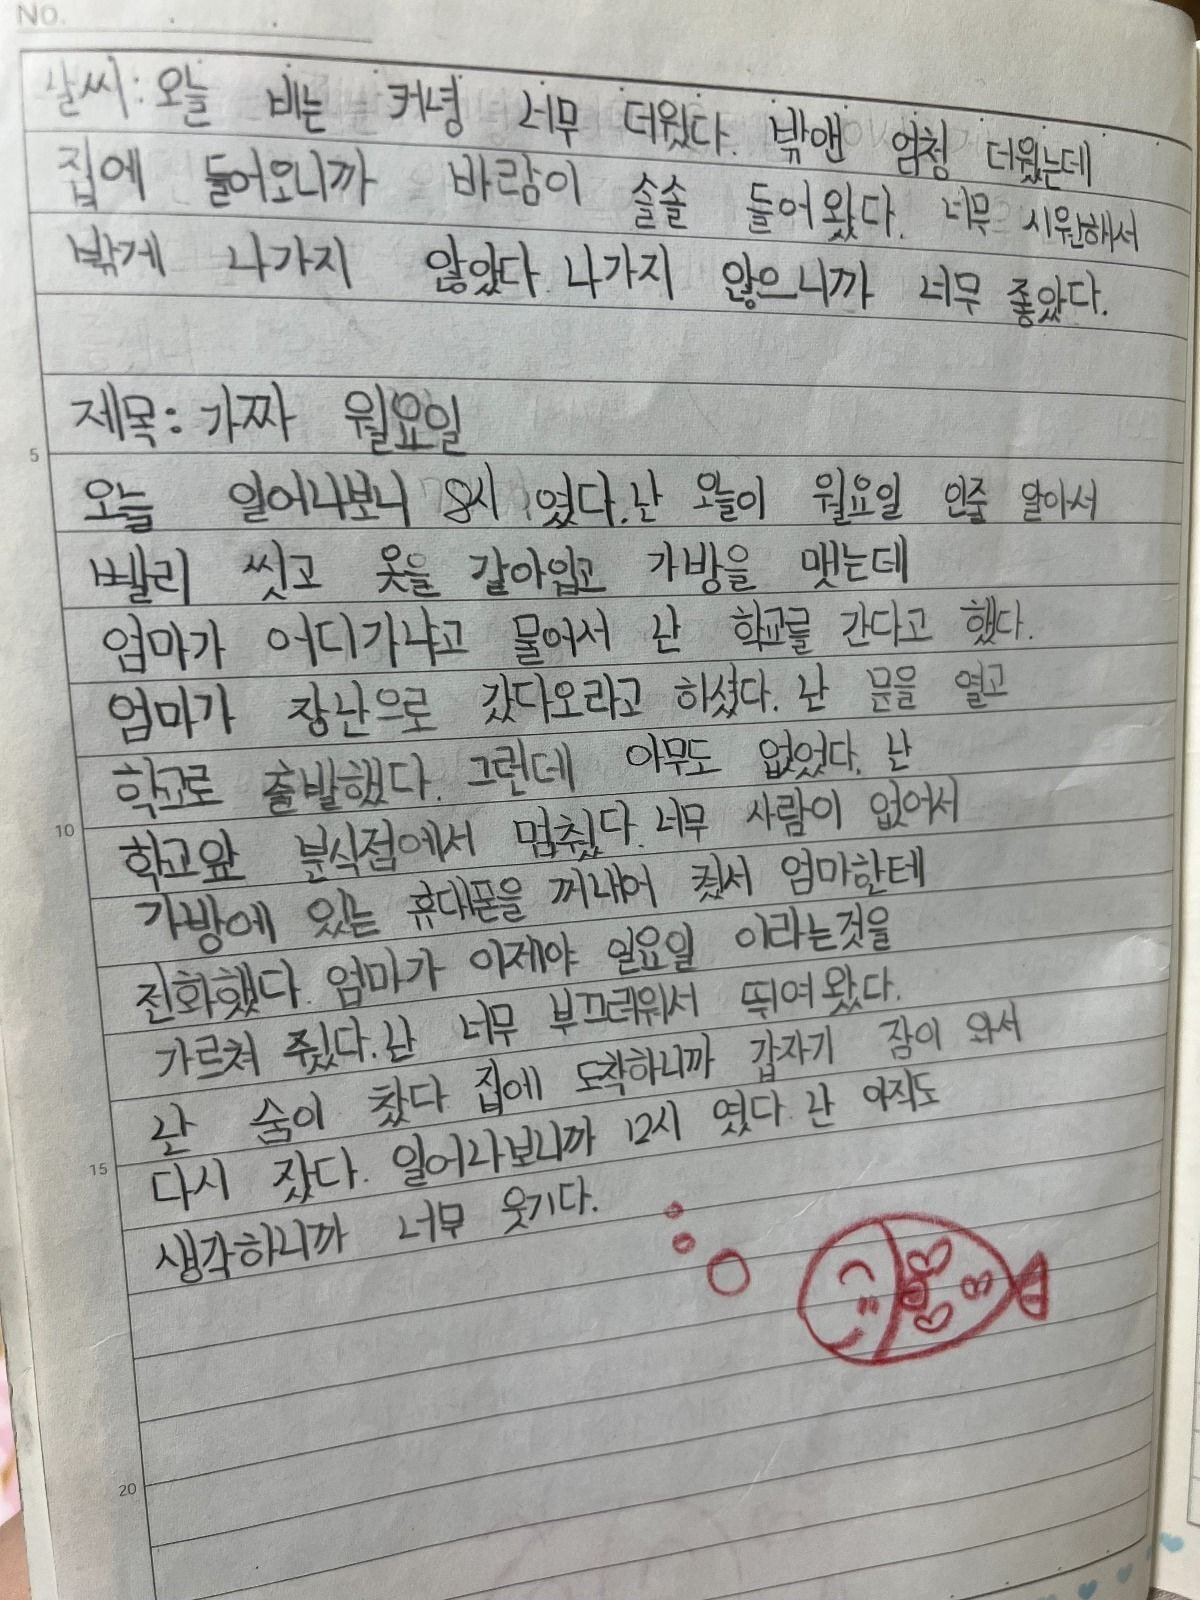 No.
날씨: 오늘 비는 커녕 너무 더웠다. 밖앤 엄청 더웠는데
집에 들어오니까 바람이 솔솔 들어왔다. 너무 시원해서
밖게 나가지 않았다. 나가지 않으니까 너무 좋았다.
제목: 가짜 월요일
5
오늘 일어나보니 8시 였다. 난 오늘이 월요일 인줄 알아서
빨리 씻고 옷을 갈아입고 가방을 맷는데
엄마가 어디가냐고 물어서 난 학교를 간다고 했다.
엄마가 장난으로 갔다오라고 하셨다. 난 문을 열고
학교로 출발했다. 그런데 아무도 없었다. 난
10
학교앞 분식점에서 멈췄다. 너무 사람이 없어서
가방에 있는 휴대폰을 꺼내어 켰서 엄마한테
전화했다. 엄마가 이제야 일요일 이라는것을
가르쳐 줬다. 난 너무 부끄러워서 뛰여왔다.
난 숨이 찼다 집에 도착하니까 갑자기 잠이 와서
15
다시 잤다. 일어나보니까 12시 였다. 난 아직도
생각하니까 너무 웃기다.
20